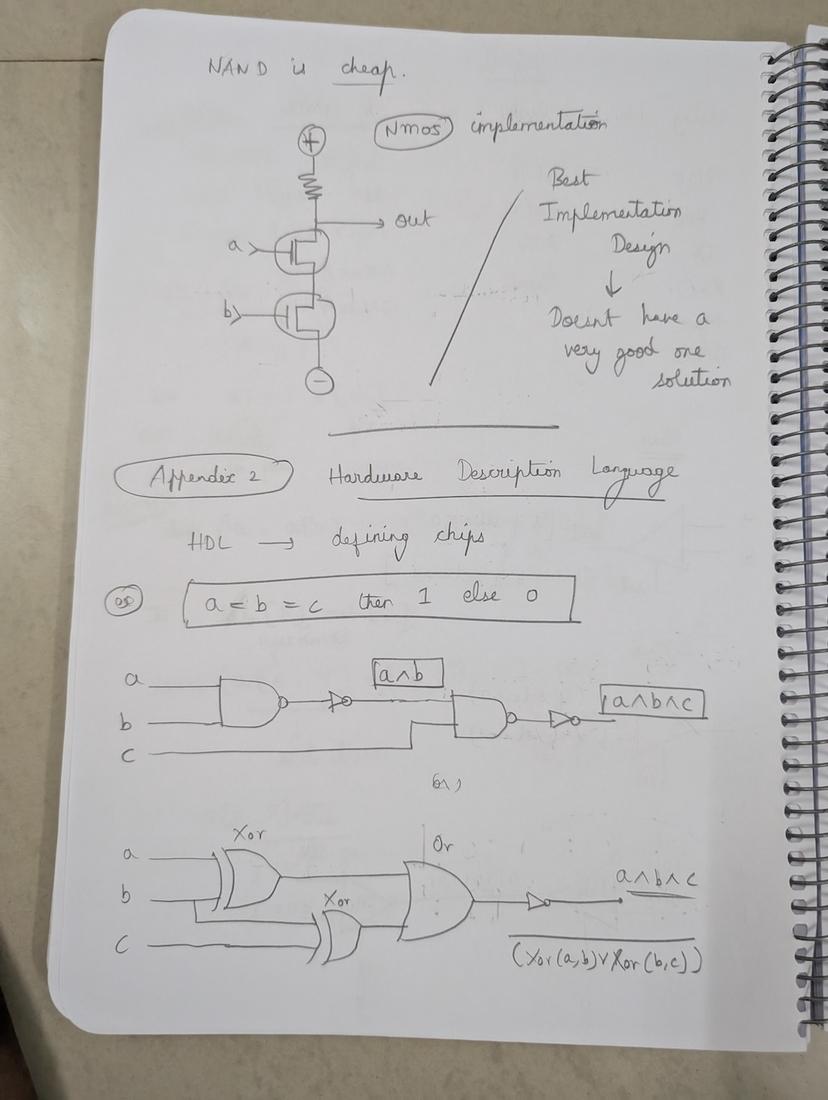 NAND is cheap.
Nmos implementation
+
out
a
b
−
Best
Implementation
Design
↓
Doesnt have a
very good one
solution
Appendix 2 Hardware Description Language
HDL → defining chips
a = b = c then 1 else 0
a
b
c
a∧b
a∧b∧c
Xor
Or
a
b
Xor
c
a∧b∧c
(Xor(a,b)∨Xor(b,c))